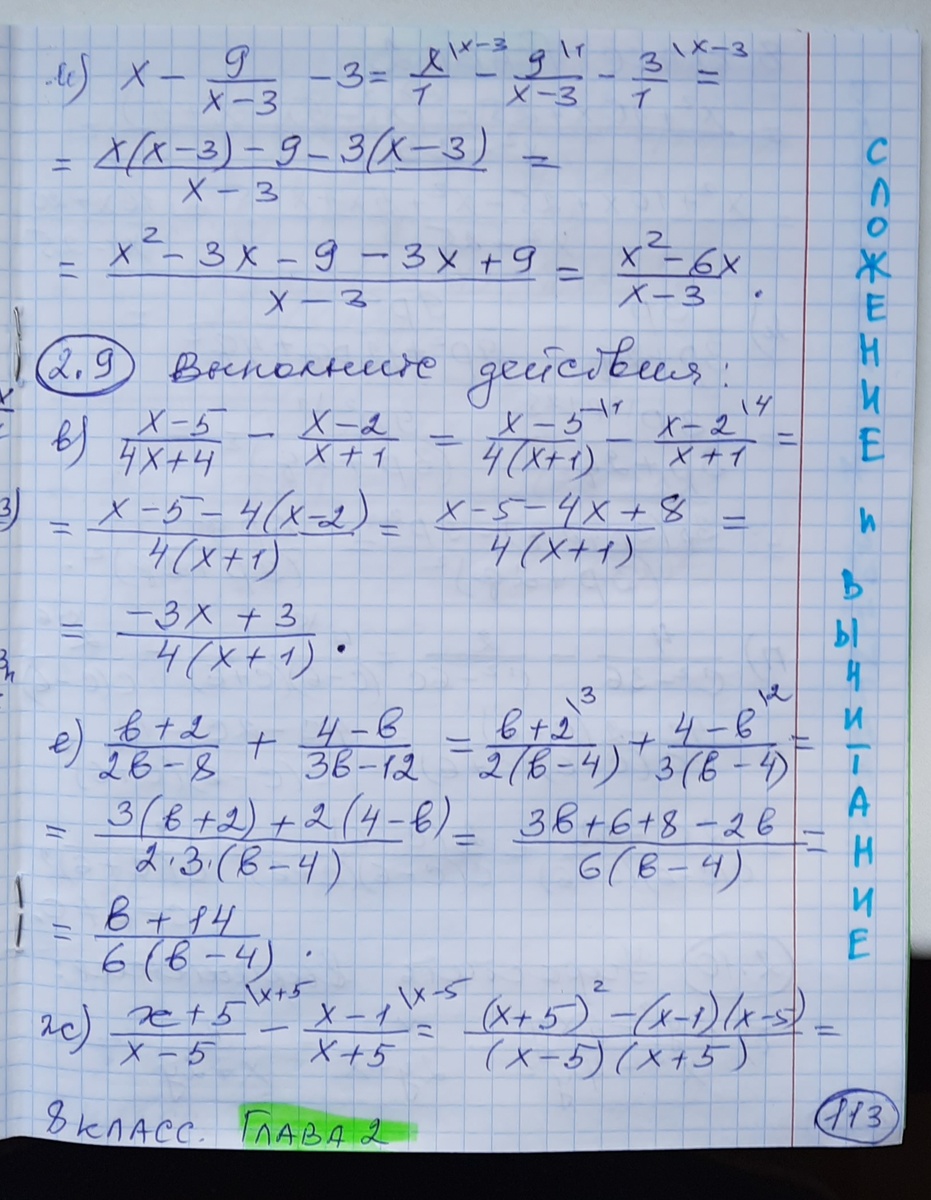 и) x - 9/(x-3) - 3 = x/1 \x-3 - 9/(x-3) \1 - 3/1 \x-3 =
= (x(x-3) - 9 - 3(x-3))/(x-3) =
= (x² - 3x - 9 - 3x + 9)/(x-3) = (x² - 6x)/(x-3).
2.9 Выполните действия:
в) (x-5)/(4x+4) - (x-2)/(x+1) = (x-5)/(4(x+1)) \1 - (x-2)/(x+1) \4 =
= (x-5-4(x-2))/(4(x+1)) = (x-5-4x+8)/(4(x+1)) =
= (-3x+3)/(4(x+1)).
е) (в+2)/(2в-8) + (4-в)/(3в-12) = (в+2)/(2(в-4)) \3 + (4-в)/(3(в-4)) \2 =
= (3(в+2)+2(4-в))/(2·3·(в-4)) = (3в+6+8-2в)/(6(в-4)) =
= (в+14)/(6(в-4)).
ж) (x+5)/(x-5) \x+5 - (x-1)/(x+5) \x-5 = ((x+5)² - (x-1)(x-5))/((x-5)(x+5)) =
8 класс. Глава 2
113
СЛОЖЕНИЕ и ВЫЧИТАНИЕ